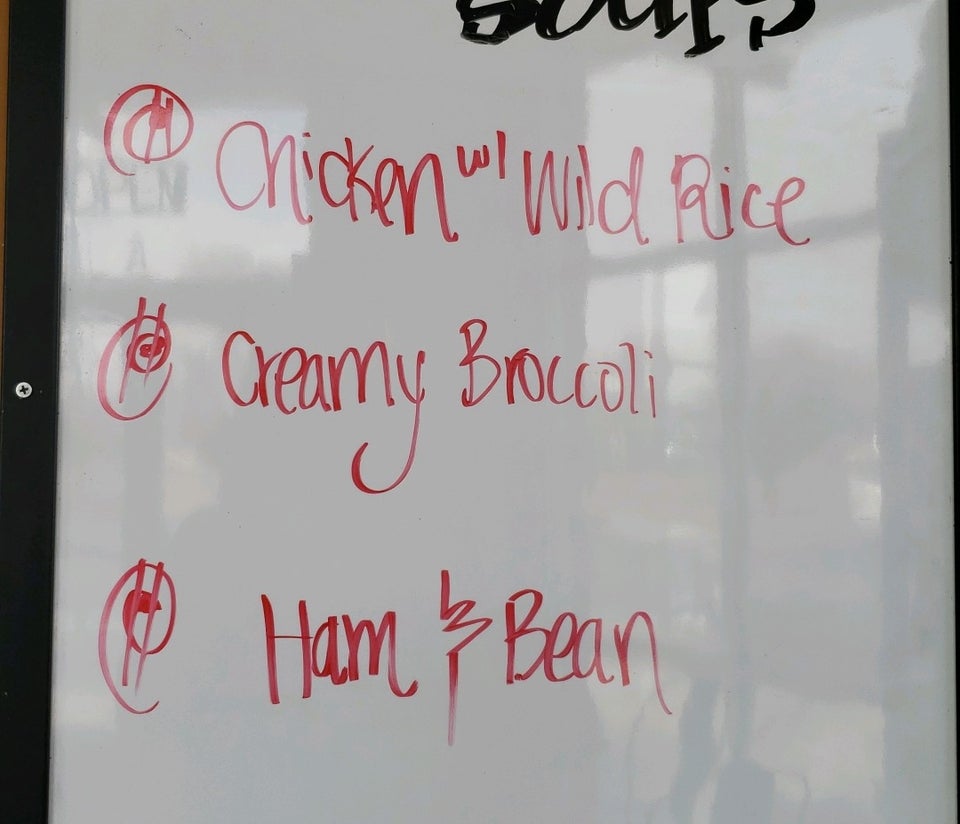 Soups
Chicken w/ Wild Rice
Creamy Broccoli
Ham & Bean